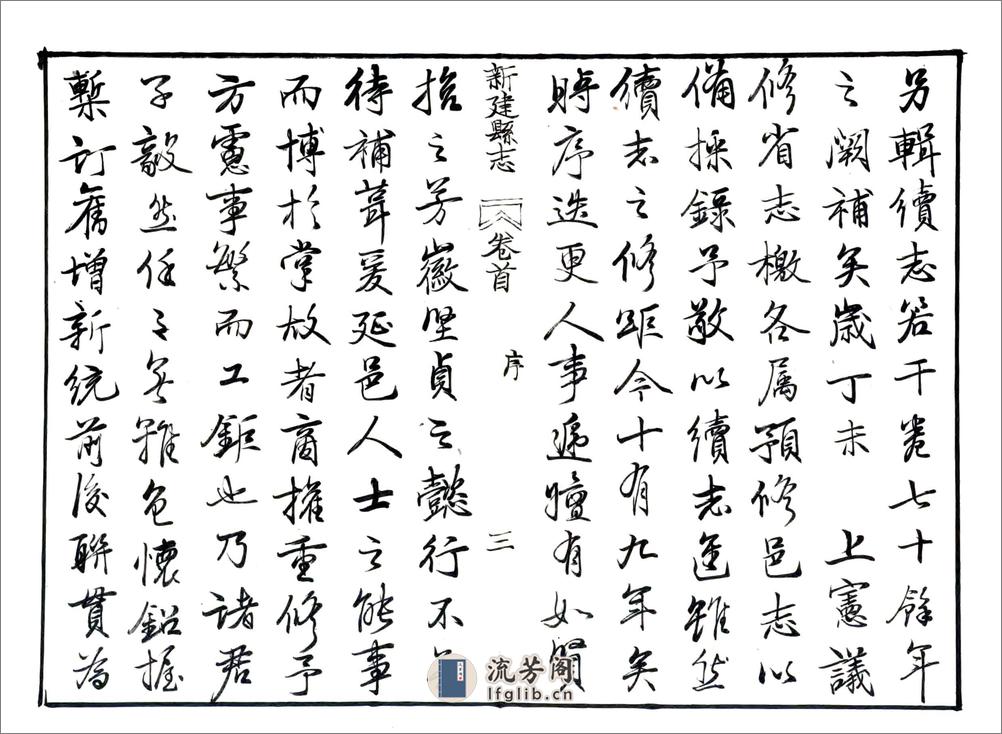 另輯續志若干卷七十餘年
之闕補矣歲丁未 上憲議
修省志檄各属預修邑志以
備採錄予敬以續志進雖然
續志之修距今十有九年矣
時序迭更人事遞嬗有如賢
新建縣志 卷首 序 三
之芳徽堅貞之懿行不
待補葺爰延邑人士之能事
而博於掌故者商搉重修予
方慮事繁而工鉅也乃諸君
子毅然任之無難色懷鉛握
槧訂舊增新統前後聯貫為
流芳阁
lfglib.cn